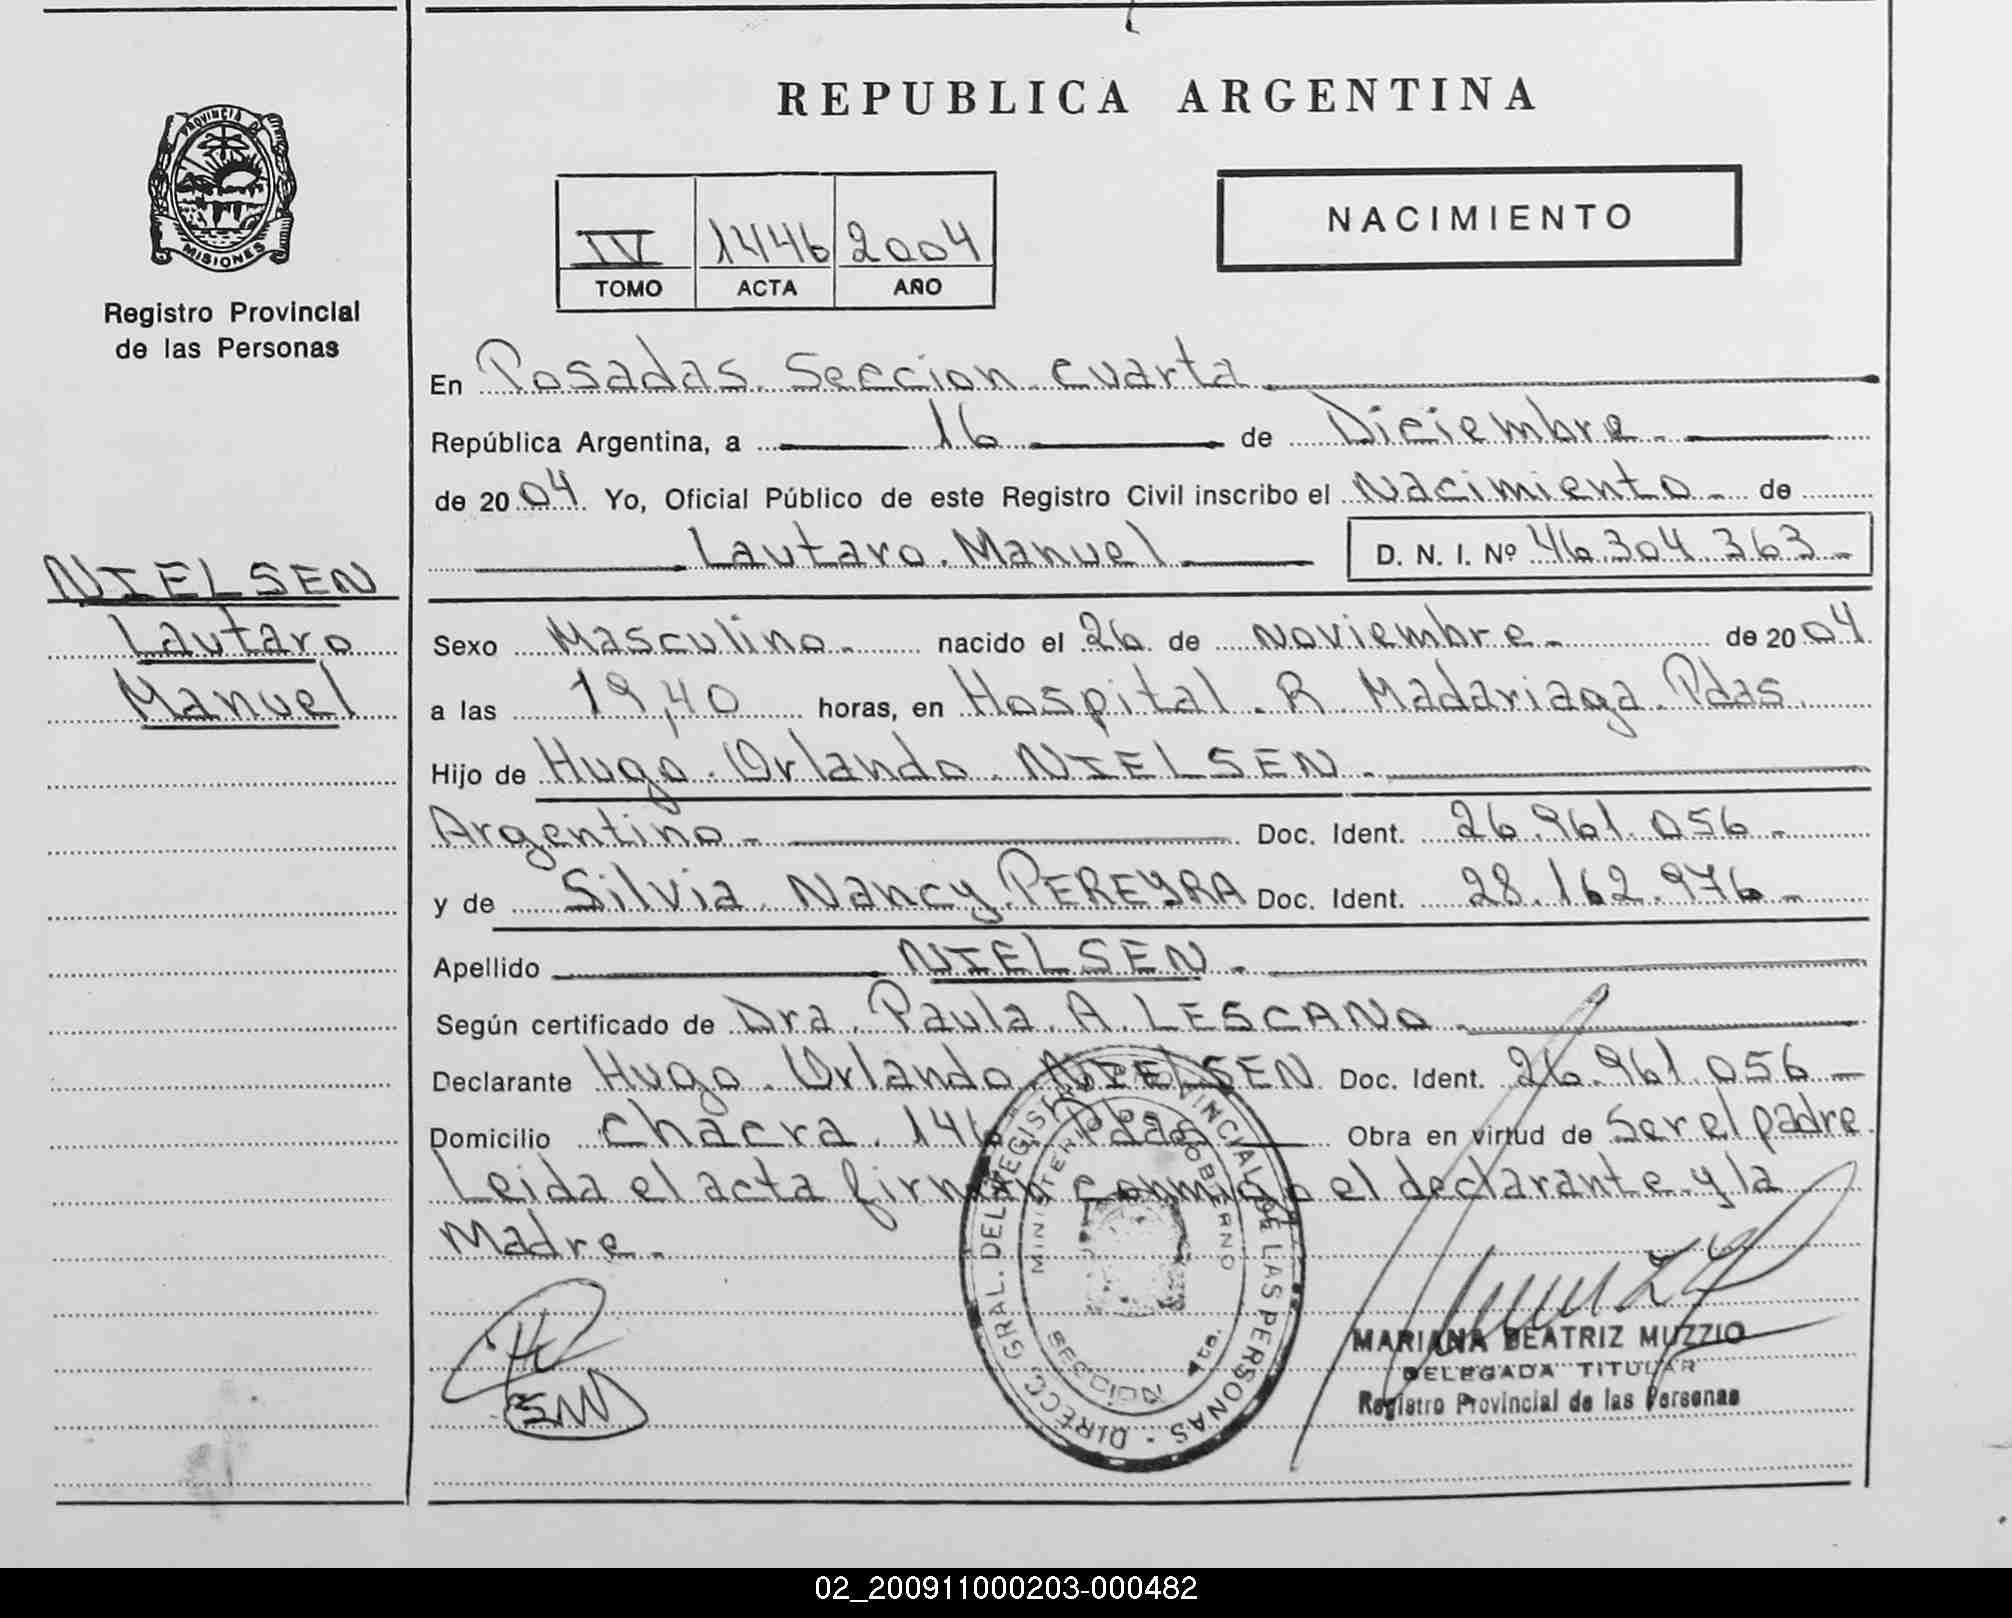 PROVINCIA DE
MISIONES
Registro Provincial
de las Personas
NIELSEN
Lautaro
Manuel
REPUBLICA ARGENTINA
IV 1446 2004
TOMO ACTA AÑO
NACIMIENTO
En Posadas Seccion cuarta
República Argentina, a 16 de Diciembre
de 2004. Yo, Oficial Público de este Registro Civil inscribo el Nacimiento de
Lautaro Manuel D. N. I. Nº 46.304.363
Sexo Masculino nacido el 26 de Noviembre de 2004
a las 19,40 horas, en Hospital R Madariaga Pdas
Hijo de Hugo Orlando NIELSEN
Argentino Doc. Ident. 26.961.056
y de Silvia Nancy PEREYRA Doc. Ident. 28.162.976
Apellido NIELSEN
Según certificado de Dra. Paula A. LESCANO
Declarante Hugo Orlando NIELSEN Doc. Ident. 26.961.056
Domicilio Chacra 146 Pdas Obra en virtud de Ser el padre
Leida el acta firman conmigo el declarante y la
Madre.
DIRECC. GRAL. DEL REGISTRO PROVINCIAL DE LAS PERSONAS
MINISTERIO DE GOBIERNO
SECCION 4ta.
MARIANA BEATRIZ MUZZIO
DELEGADA TITULAR
Registro Provincial de las Personas
02_200911000203-000482